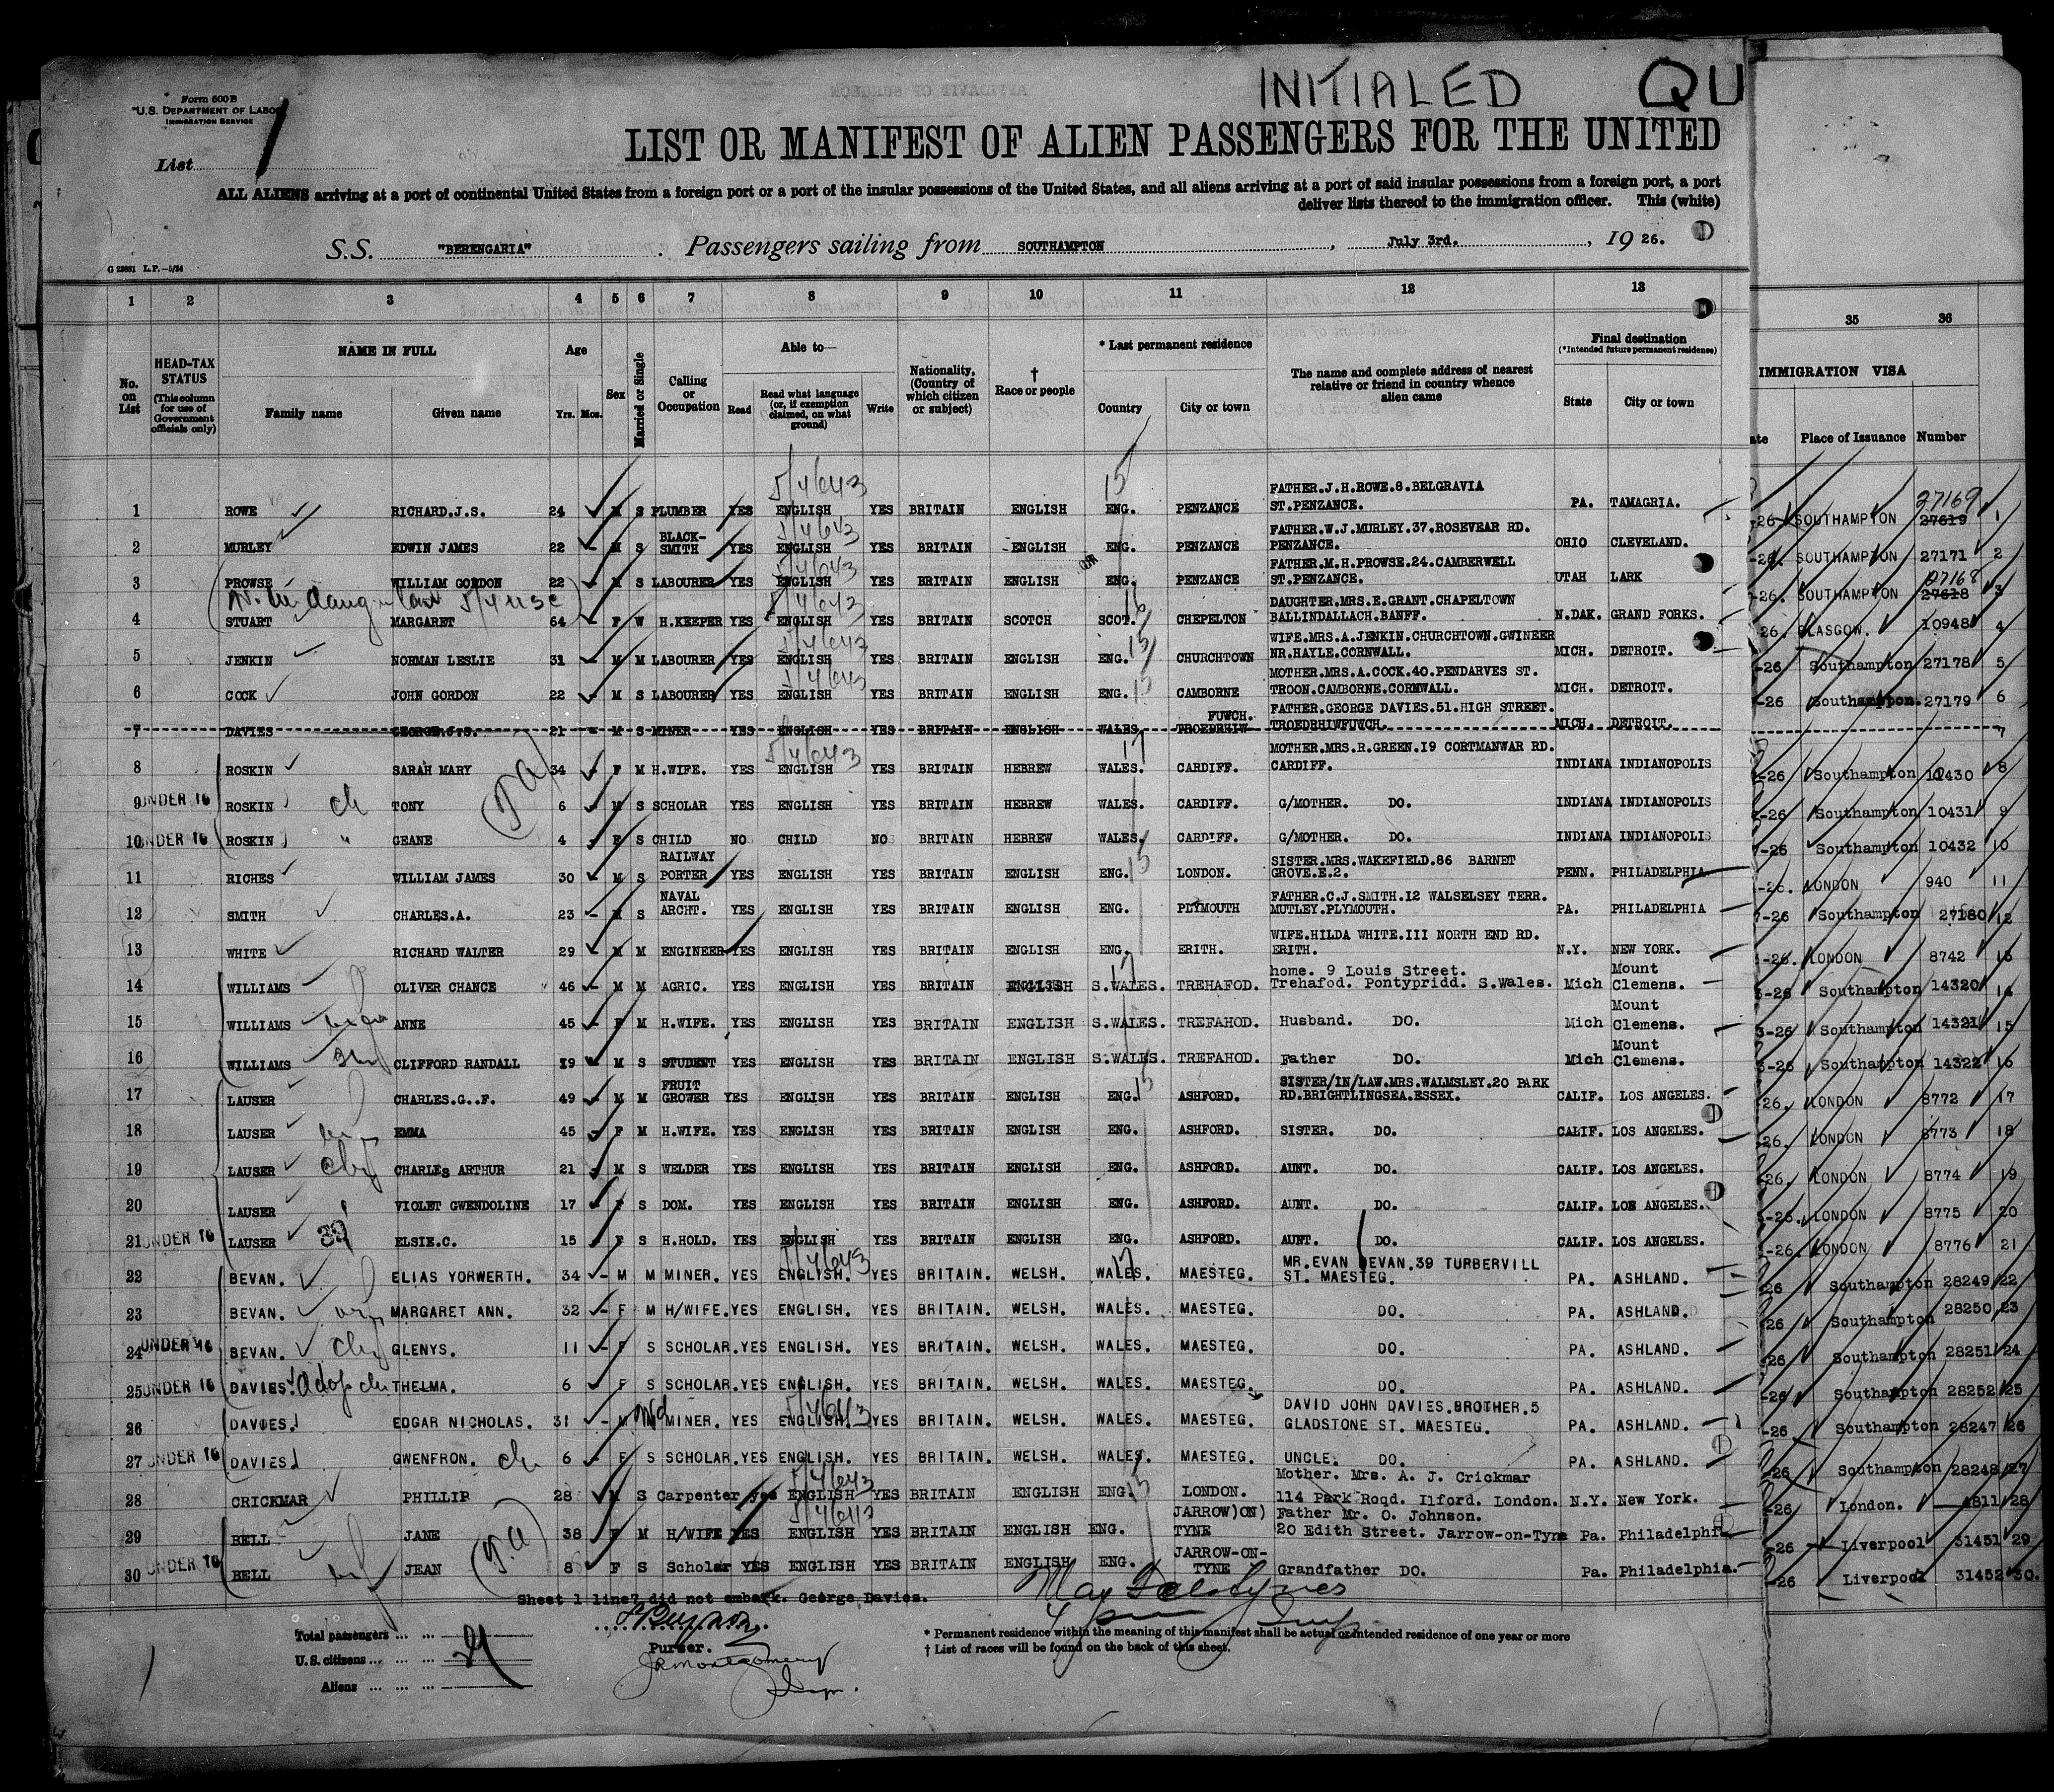 INITIALED QU
Form 500 B
U.S. DEPARTMENT OF LABOR
IMMIGRATION SERVICE
List 1
LIST OR MANIFEST OF ALIEN PASSENGERS FOR THE UNITED
ALL ALIENS arriving at a port of continental United States from a foreign port or a port of the insular possessions of the United States, and all aliens arriving at a port of said insular possessions from a foreign port, a port
deliver lists thereof to the immigration officer. This (white)
S.S. "BERENGARIA". Passengers sailing from SOUTHAMPTON, July 3rd., 19 26.
1 2 3 4 5 6 7 8 9 10 11 12 13 35 36
No. on List
HEAD-TAX STATUS (This column for use of Government officials only)
NAME IN FULL Family name Given name
Age Yrs. Mos.
Sex
Married or Single
Calling or Occupation
Able to— Read Read what language (or, if exemption claimed, on what ground) Write
Nationality, (Country of which citizen or subject)
† Race or people
* Last permanent residence Country City or town
The name and complete address of nearest relative or friend in country whence alien came
Final destination (*Intended future permanent residence) State City or town
IMMIGRATION VISA
ate Place of Issuance Number
1 ROWE RICHARD.J.S. 24 M S PLUMBER YES ENGLISH YES BRITAIN ENGLISH ENG. PENZANCE FATHER.J.H.ROWE.8.BELGRAVIA ST.PENZANCE. PA. TAMAGRIA. -26. SOUTHAMPTON 27619 27169 1
2 MURLEY EDWIN JAMES 22 M S BLACK-SMITH YES ENGLISH YES BRITAIN ENGLISH ENG. PENZANCE FATHER.W.J.MURLEY.37.ROSEVEAR RD. PENZANCE. OHIO CLEVELAND. -26. SOUTHAMPTON 27171 2
3 PROWSE WILLIAM GORDON 22 M S LABOURER YES ENGLISH YES BRITAIN ENGLISH ENG. PENZANCE FATHER.M.H.PROWSE.24.CAMBERWELL ST.PENZANCE. UTAH LARK -26. SOUTHAMPTON 27618 27168 3
4 STUART MARGARET 64 F W H.KEEPER YES ENGLISH YES BRITAIN SCOTCH SCOT. CHEPELTON DAUGHTER.MRS.E.GRANT.CHAPELTOWN BALLINDALLACH.BANFF. N.DAK. GRAND FORKS. 26. GLASGOW. 10948 4
5 JENKIN NORMAN LESLIE 31 M M LABOURER YES ENGLISH YES BRITAIN ENGLISH ENG. CHURCHTOWN WIFE.MRS.A.JENKIN.CHURCHTOWN.GWINEER NR.HAYLE.CORNWALL. MICH. DETROIT. -26 Southampton 27178 5
6 COCK JOHN GORDON 22 M S LABOURER YES ENGLISH YES BRITAIN ENGLISH ENG. CAMBORNE MOTHER.MRS.A.COCK.40.PENDARVES ST. TROON.CAMBORNE.CORNWALL. MICH. DETROIT. -26 Southampton. 27179 6
7 DAVIES GEORGE.J.S. 21 M S MINER YES ENGLISH YES BRITAIN ENGLISH WALES. TROEDRHIW-FUWCH. FATHER.GEORGE DAVIES.51.HIGH STREET. TROEDRHIWFUWCH. MICH. DETROIT. 7
8 ROSKIN SARAH MARY 34 F M H.WIFE. YES ENGLISH YES BRITAIN HEBREW WALES. CARDIFF. MOTHER.MRS.R.GREEN.I9 CORTMANWAR RD. CARDIFF. INDIANA INDIANOPOLIS -26 Southampton 10430 8
9 UNDER 16 ROSKIN ch TONY 6 M S SCHOLAR YES ENGLISH YES BRITAIN HEBREW WALES. CARDIFF. G/MOTHER. DO. INDIANA INDIANOPOLIS -26 Southampton 10431 9
10 UNDER 16 ROSKIN " GEANE 4 F S CHILD NO CHILD NO BRITAIN HEBREW WALES. CARDIFF. G/MOTHER. DO. INDIANA INDIANOPOLIS -26 Southampton 10432 10
11 RICHES WILLIAM JAMES 30 M S RAILWAY PORTER YES ENGLISH YES BRITAIN ENGLISH ENG. LONDON. SISTER.MRS.WAKEFIELD.86 BARNET GROVE.E.2. PENN. PHILADELPHIA -26. LONDON 940 11
12 SMITH CHARLES.A. 23 M S NAVAL ARCHT. YES ENGLISH YES BRITAIN ENGLISH ENG. PLYMOUTH FATHER.C.J.SMITH.12 WALSELSEY TERR. MUTLEY.PLYMOUTH. PA. PHILADELPHIA -26 Southampton 27180 12
13 WHITE RICHARD WALTER 29 M M ENGINEER YES ENGLISH YES BRITAIN ENGLISH ENG. ERITH. WIFE.HILDA WHITE.III NORTH END RD. ERITH. N.Y. NEW YORK. -26. LONDON 8742 13
14 WILLIAMS OLIVER CHANCE 46 M M AGRIC. YES ENGLISH YES BRITAIN ENGLISH S.WALES. TREHAFOD. home. 9 Louis Street. Trehafod. Pontypridd. S.Wales. Mich Mount Clemens. 3-26 Southampton 14320 14
15 WILLIAMS ANNE 45 F M H.WIFE. YES ENGLISH YES BRITAIN ENGLISH S.WALES. TREFAHOD. Husband. DO. Mich Mount Clemens. 3-26 Southampton 14321 15
16 WILLIAMS CLIFFORD RANDALL 19 M S STUDENT YES ENGLISH YES BRITAIN ENGLISH S.WALES. TREFAHOD. Father DO. Mich Mount Clemens. 3-26 Southampton 14322 16
17 LAUSER CHARLES.G..F. 49 M M FRUIT GROWER YES ENGLISH YES BRITAIN ENGLISH ENG. ASHFORD. SISTER/IN/LAW.MRS.WALMSLEY.20 PARK RD.BRIGHTLINGSEA.ESSEX. CALIF. LOS ANGELES. 26. LONDON 8772 17
18 LAUSER EMMA 45 F M H.WIFE. YES ENGLISH YES BRITAIN ENGLISH ENG. ASHFORD. SISTER. DO. CALIF. LOS ANGELES. -26. LONDON 8773 18
19 LAUSER CHARLES ARTHUR 21 M S WELDER YES ENGLISH YES BRITAIN ENGLISH ENG. ASHFORD. AUNT. DO. CALIF. LOS ANGELES. -26. LONDON 8774 19
20 LAUSER VIOLET GWENDOLINE 17 F S DOM. YES ENGLISH YES BRITAIN ENGLISH ENG. ASHFORD. AUNT. DO. CALIF. LOS ANGELES. -26. LONDON 8775 20
21 UNDER 16 LAUSER ELSIE.C. 15 F S H.HOLD. YES ENGLISH YES BRITAIN ENGLISH ENG. ASHFORD. AUNT. DO. CALIF. LOS ANGELES. -26. LONDON 8776 21
22 BEVAN. ELIAS YORWERTH. 34 M M MINER. YES ENGLISH. YES BRITAIN. WELSH. WALES. MAESTEG. MR.EVAN BEVAN.39 TURBERVILL ST. MAESTEG. PA. ASHLAND. 26 Southampton 28249 22
23 BEVAN. MARGARET ANN. 32 F M H/WIFE. YES ENGLISH. YES BRITAIN. WELSH. WALES. MAESTEG. DO. PA. ASHLAND. 26 Southampton 28250 23
24 UNDER 16 BEVAN. GLENYS. 11 F S SCHOLAR. YES ENGLISH. YES BRITAIN. WELSH. WALES. MAESTEG. DO. PA. ASHLAND. -26 Southampton 28251 24
25 UNDER 16 DAVIES. Adop ch THELMA. 6 F S SCHOLAR. YES ENGLISH. YES BRITAIN. WELSH. WALES. MAESTEG. DO. PA. ASHLAND. -26 Southampton 28252 25
26 DAVIES. EDGAR NICHOLAS. 31 M Wd MINER. YES ENGLISH. YES BRITAIN. WELSH. WALES. MAESTEG. DAVID JOHN DAVIES.BROTHER.5 GLADSTONE ST. MAESTEG. PA. ASHLAND. -26 Southampton 28247 26
27 UNDER 16 DAVIES. GWENFRON. ch 6 F S SCHOLAR. YES ENGLISH. YES BRITAIN. WELSH. WALES. MAESTEG. UNCLE. DO. PA. ASHLAND. -26 Southampton 28248 27
28 CRICKMAR PHILLIP 28 M S Carpenter yes ENGLISH YES BRITAIN ENGLISH ENG. LONDON. Mother. Mrs. A. J. Crickmar 114 Park Road. Ilford. London. N.Y. New York. -26 London. 4811 28
29 BELL JANE 38 F M H/WIFE YES ENGLISH YES BRITAIN ENGLISH ENG. JARROW)ON) TYNE Father Mr. O. Johnson. 20 Edith Street. Jarrow-on-Tyne Pa. Philadelphia -26 Liverpool 31451 29
30 UNDER 16 BELL JEAN 8 F S Scholar YES ENGLISH YES BRITAIN ENGLISH ENG. JARROW-ON-TYNE Grandfather DO. Pa. Philadelphia. -26 Liverpool 31452 30.
Sheet 1 line 7 did not embark. George Davies.
Purser.
Total passengers
U.S. citizens
Aliens
* Permanent residence within the meaning of this manifest shall be actual or intended residence of one year or more
† List of races will be found on the back of this sheet.